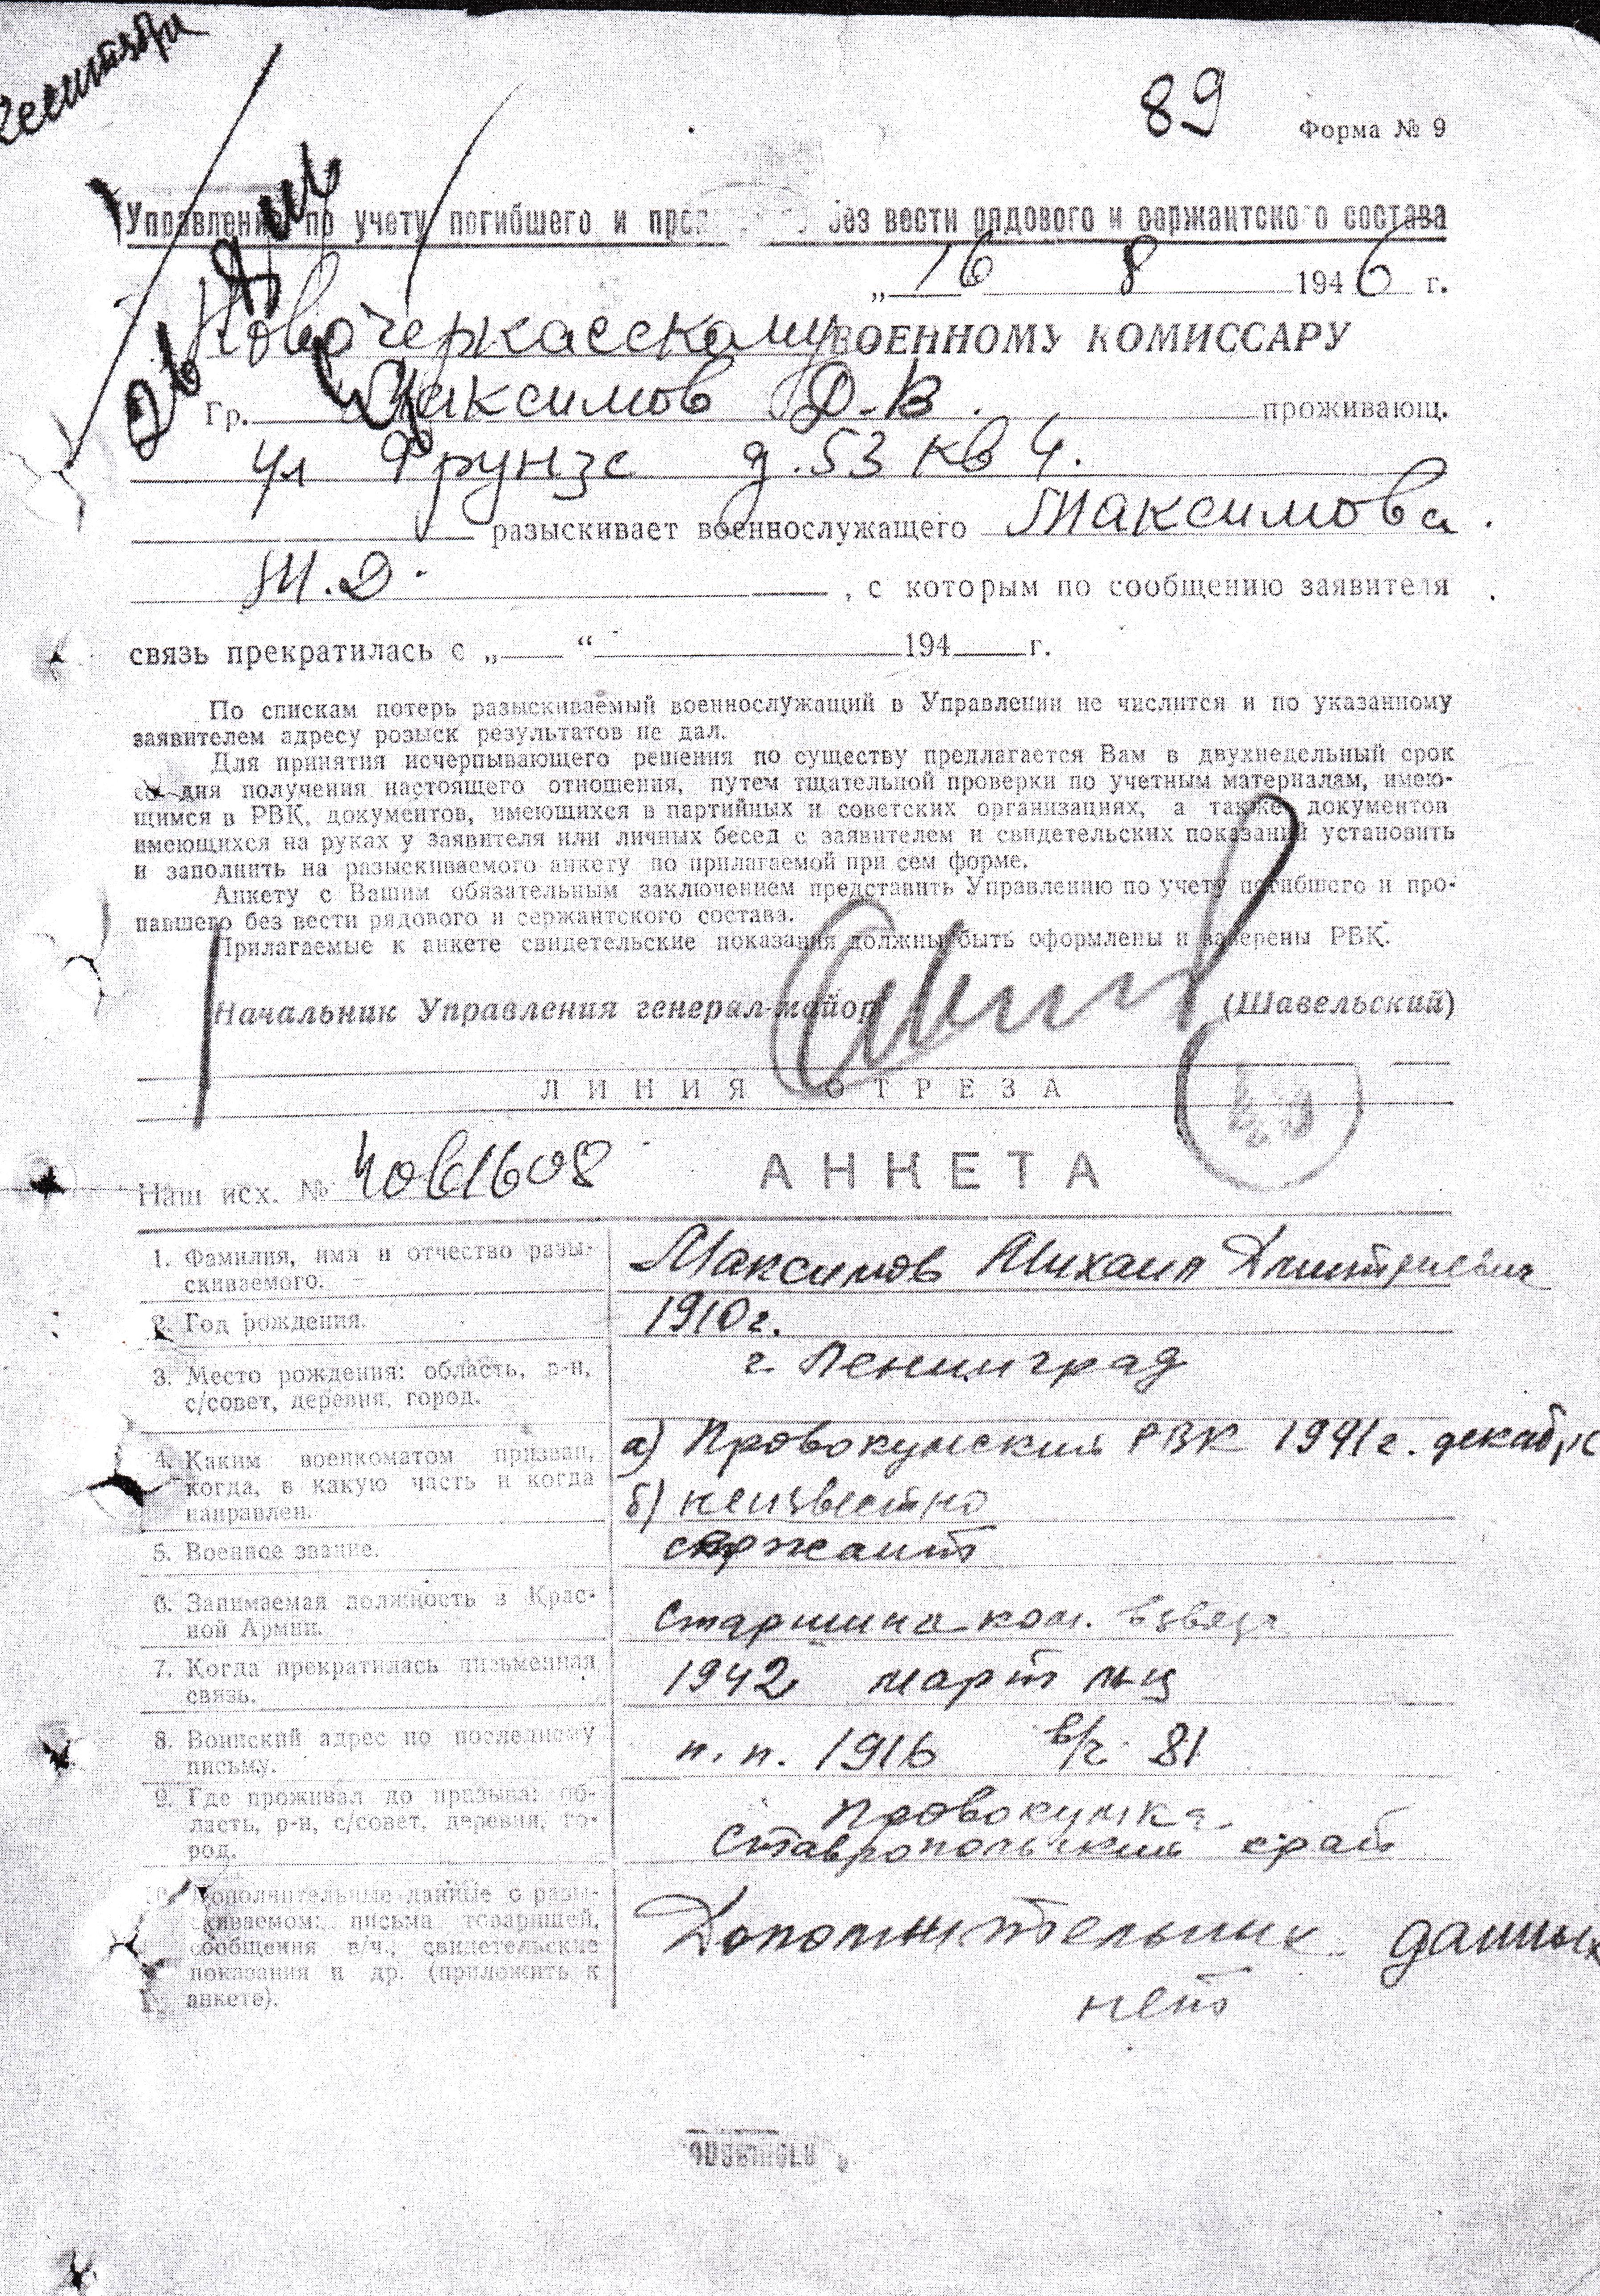 89
Форма № 9
Управление по учету погибшего и без вести рядового и сержантского состава
„ 16 8 1946 г.
Новочеркасскому ВОЕННОМУ КОМИССАРУ
Гр. Максимов Д.В. проживающ.
ул Фрунзе д.53 кв 4.
разыскивает военнослужащего Максимова
М.Д. , с которым по сообщению заявителя
связь прекратилась с „ “ 194 г.
По спискам потерь разыскиваемый военнослужащий в Управлении не числится и по указанному
заявителем адресу розыск результатов не дал.
Для принятия исчерпывающего решения по существу предлагается Вам в двухнедельный срок
со дня получения настоящего отношения, путем тщательной проверки по учетным материалам, имею-
щимся в РВК, документов, имеющихся в партийных и советских организациях, а также документов
имеющихся на руках у заявителя или личных бесед с заявителем и свидетельских показаний установить
и заполнить на разыскиваемого анкету по прилагаемой при сем форме.
Анкету с Вашим обязательным заключением представить Управлению по учету погибшего и про-
павшего без вести рядового и сержантского состава.
Прилагаемые к анкете свидетельские показания должны быть оформлены и заверены РВК.
Начальник Управления генерал-майор (Шавельский)
ЛИНИЯ ОТРЕЗА
Наш исх. №
АНКЕТА
1. Фамилия, имя и отчество разы-
скиваемого.
Максимов Михаил Дмитриевич
2. Год рождения.
1910 г.
3. Место рождения: область, р-н,
с/совет, деревня, город.
г. Ленинград
4. Каким военкоматом призван,
когда, в какую часть и когда
направлен.
а) Провокумский РВК 1941 г. декабрь
б) неизвестно
5. Военное звание.
сержант
6. Занимаемая должность в Крас-
ной Армии.
Старшина ком. взвода
7. Когда прекратилась письменная
связь.
1942 март м-ц
8. Воинский адрес по последнему
письму.
п.п. 1916 в/ч 81
9. Где проживал до призыва: об-
ласть, р-н, с/совет, деревня, го-
род.
Провокумка
Ставропольский край
10. Дополнительные данные о разы-
скиваемом: письма товарищей,
сообщения в/ч., свидетельские
показания и др. (приложить к
анкете).
Дополнительных данных
нет